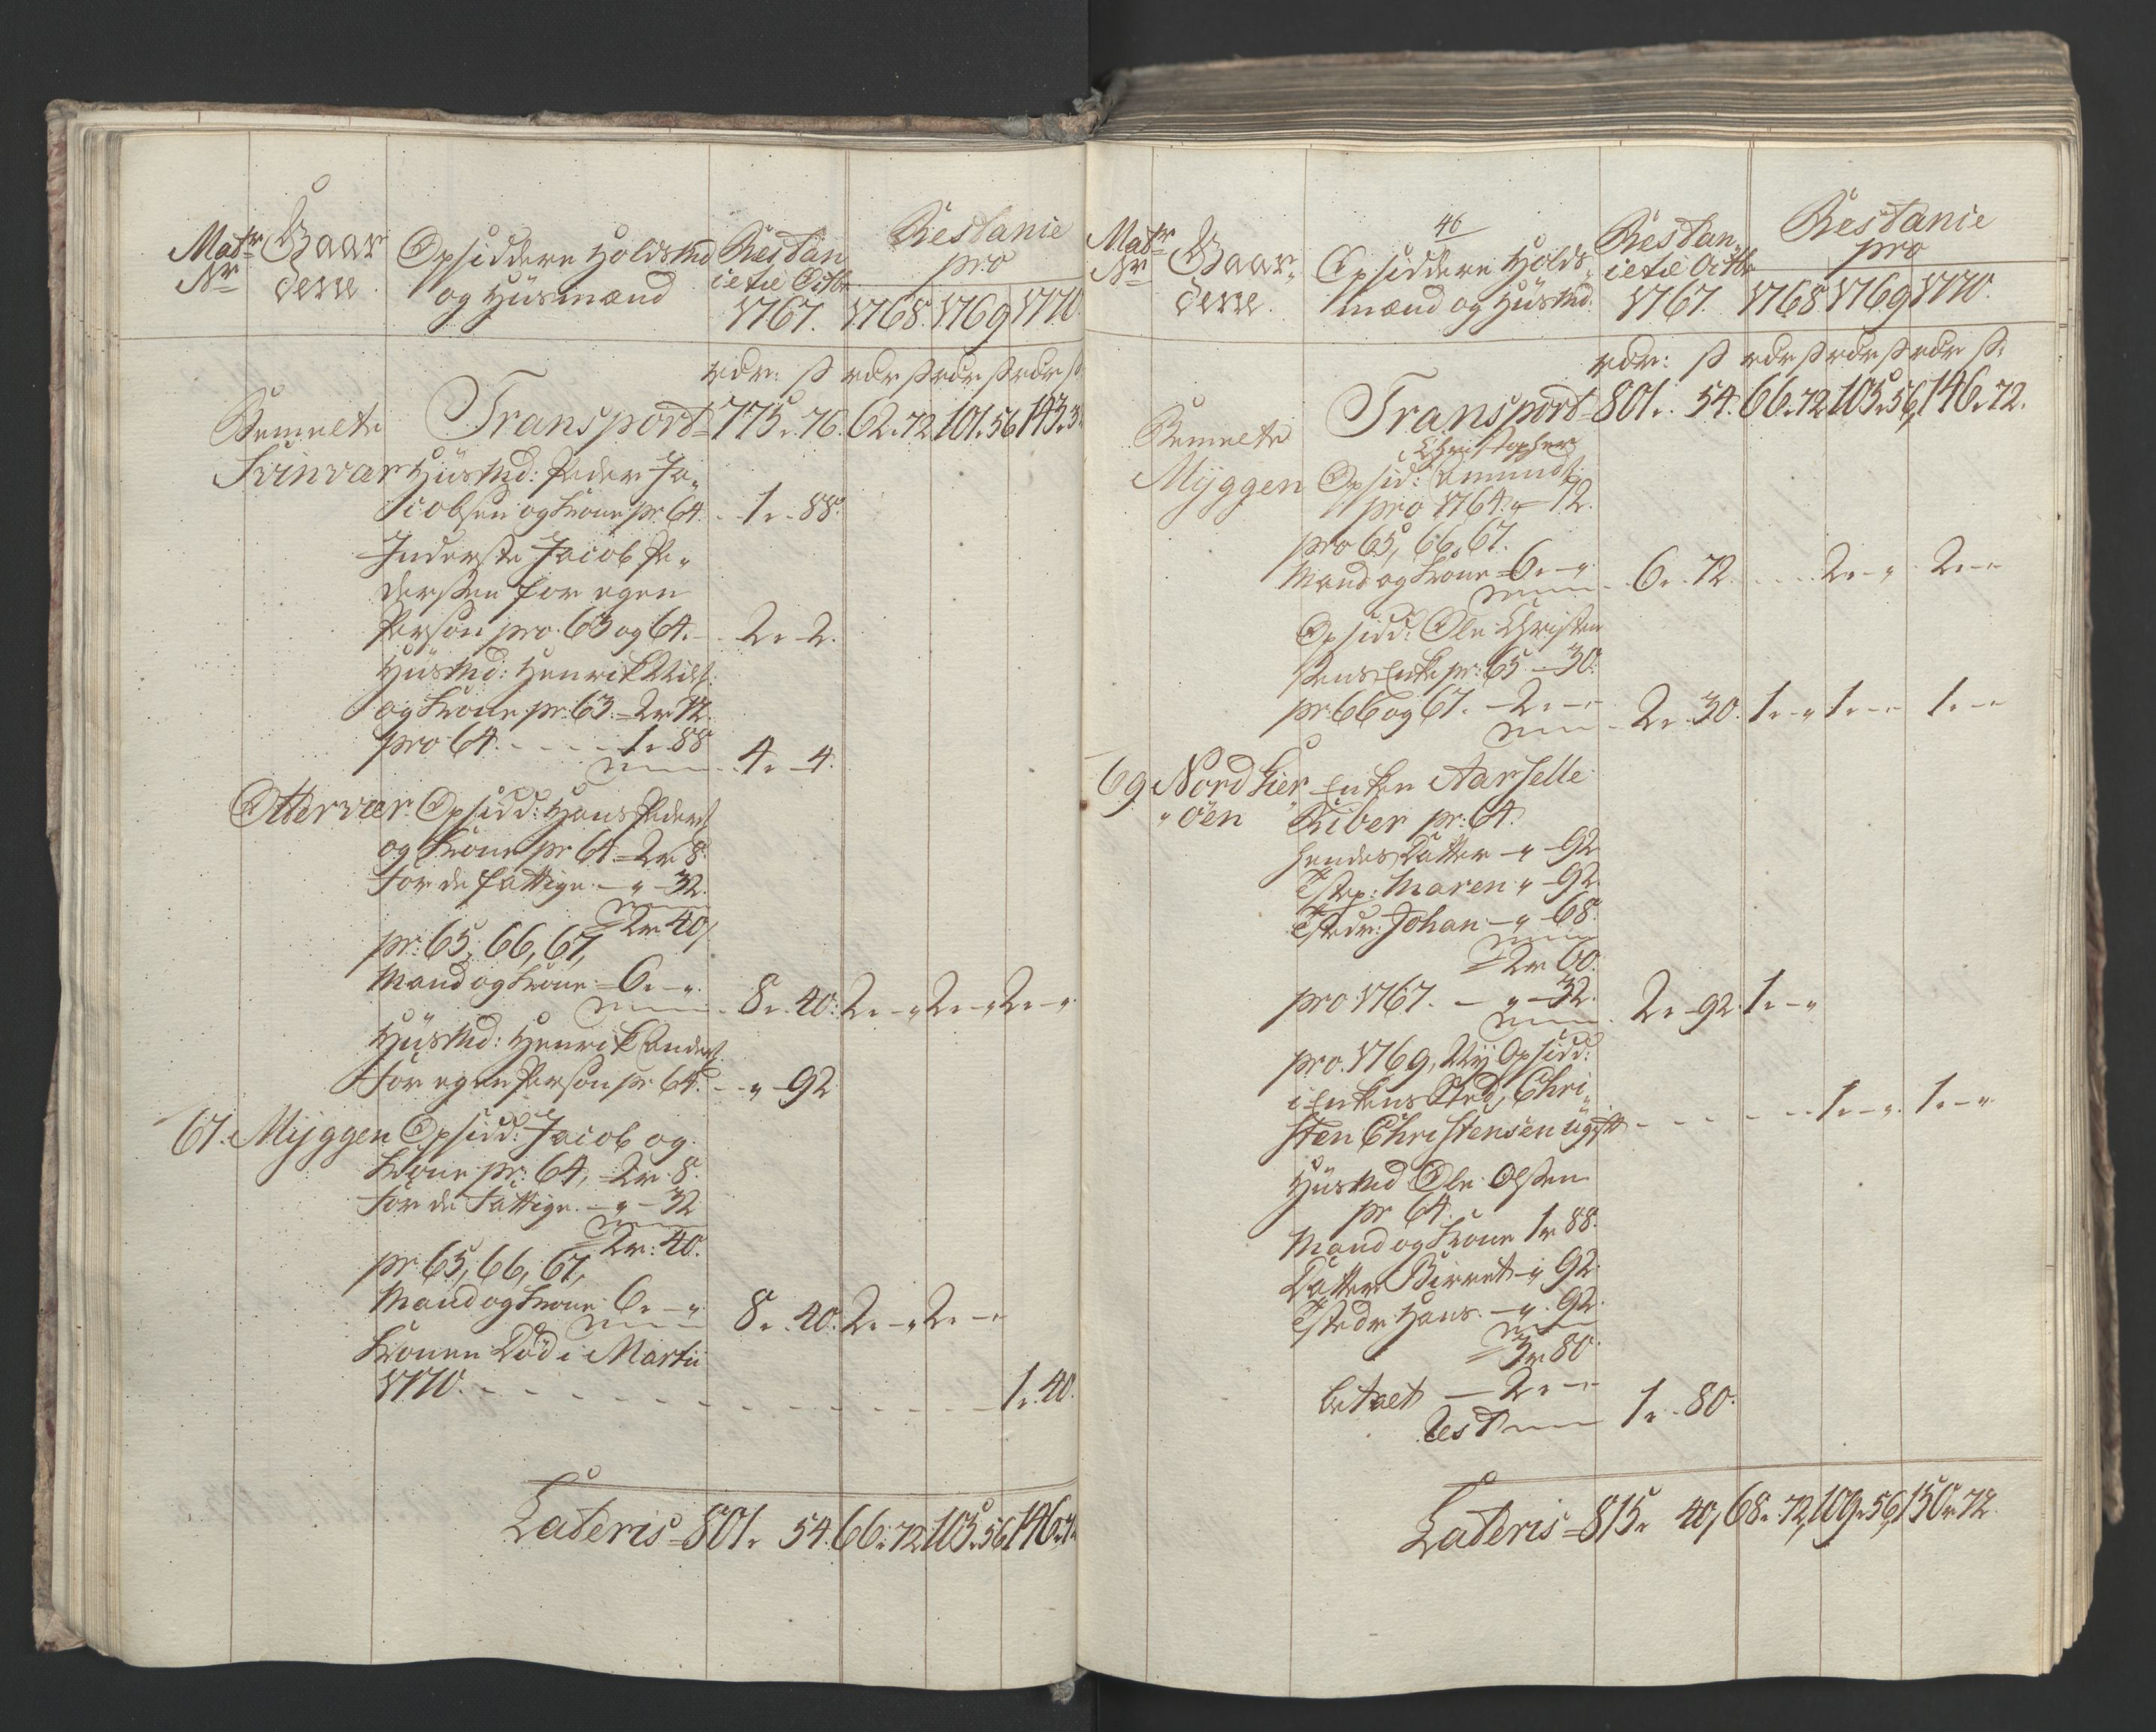 Matr Nr
Gaar
derne
Opsiddere Holdsmd
og Huusmænd
Restan
ie til Octbr
1767.
Restanie
pro
1768. 1769 1770.
rdr: ß rdr ß rdr ß rdr ß
Transport = 775. 76. 62. 72 101. 56 143. 3
Svinvær Huusmd: Peder Ja-
cobsen og Kone pr. 64. - 1. - 88.
Inderste Jacob Pe-
dersen for egen
Person pro 63 og 64. - 2. - 2.
Huusmd: Henrik Nilss:
og Kone pr. 63. = 2r 12.
pro 64. - - - - 1. 88
4. - 4.
Ottervær Opsidd: Hans Peders
og Kone pr 64. = 2r 8.
for de fattige. - „ - 32.
2r 40/
pr: 65, 66, 67,
Mand og Kone = 6. - „.
8. 40: 2. - „ 2. - „ 2. - „.
Huusmd: Henrik Anders.
for egen Person pr. 64. - - „ - 92
67. Myggen Opsidd: Jacob og
Kone pr: 64, = 2r 8.
for de Fattige. - „ - 32
2r: 40.
pr: 65, 66, 67,
Mand og Kone. 6. - „.
8. 40. 2. - „ 2. - „
Konen Død i Martii
1770. - - - - - - - 1. 40.
Lateris = 801. 54. 66. 72. 105. 56. 146. 72
46
Matr Nr
Gaar-
derne.
Opsiddere Holds-
mænd og Huusmd.
Restan-
ie til Octbr
1767.
Restanie
pro
1768 1769 1770.
rdr: ß rdr ß rdr ß rdr ß:
Transport = 801. 54. 66. 72 105. 56, 146. 72.
Christopher
Myggen Opsid: Amunds:
pro 1764. „ - 12.
pro 65, 66, 67.
Mand og Kone = 6. - „.
6. 72. - - - 2. - „ 2. - „
Opsidd: Ole Christen
sens Enke pr: 65 - 30.
pr: 66 og 67. - 2. - „
2. 30. 1. - „ 1. - „ 1. - „
69. Nord Kier- Enken Aarselle
„ öen Riber pr: 64.
hendes Datter - „ - 92
Maren „ - 92.
Johan - „ - 68.
2r 60.
pro 1767. - „ - 32.
2. - 92. 1. - „
pro. 1769, Ny Opsidd:
i Enkens Sted, Chri-
sten Christensen ugift - - - - 1. - „. 1. - „.
Huusmd Ole Olsen
pr 64.
Mand og Kone 1r 88.
Datter Birret - „ 92.
Hans. - „. 92.
3r 80.
betalt - 2. - „
Rest
1. 80.
Lateris = 815. 40, 68. 72, 109. 56, 150. 72.